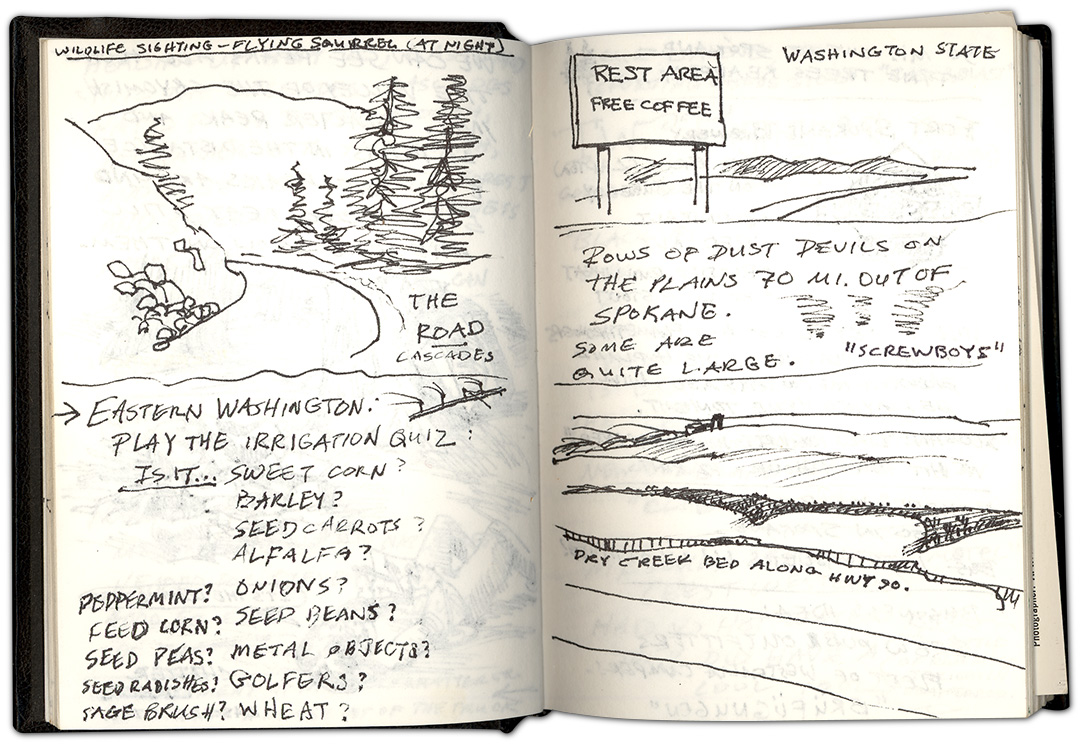 WILDLIFE SIGHTING – FLYING SQUIRREL (AT NIGHT)
THE
ROAD
CASCADES
→ EASTERN WASHINGTON:
PLAY THE IRRIGATION QUIZ:
IS IT... SWEET CORN?
BARLEY?
SEED CARROTS?
ALFALFA?
ONIONS?
SEED BEANS?
METAL OBJECTS?
GOLFERS?
WHEAT?
PEPPERMINT?
FEED CORN?
SEED PEAS?
SEED RADISHES?
SAGE BRUSH?
WASHINGTON STATE
REST AREA
FREE COFFEE
ROWS OF DUST DEVILS ON
THE PLAINS 70 MI. OUT OF
SPOKANE.
SOME ARE
QUITE LARGE.
"SCREWBOYS"
DRY CREEK BED ALONG HWY 90.